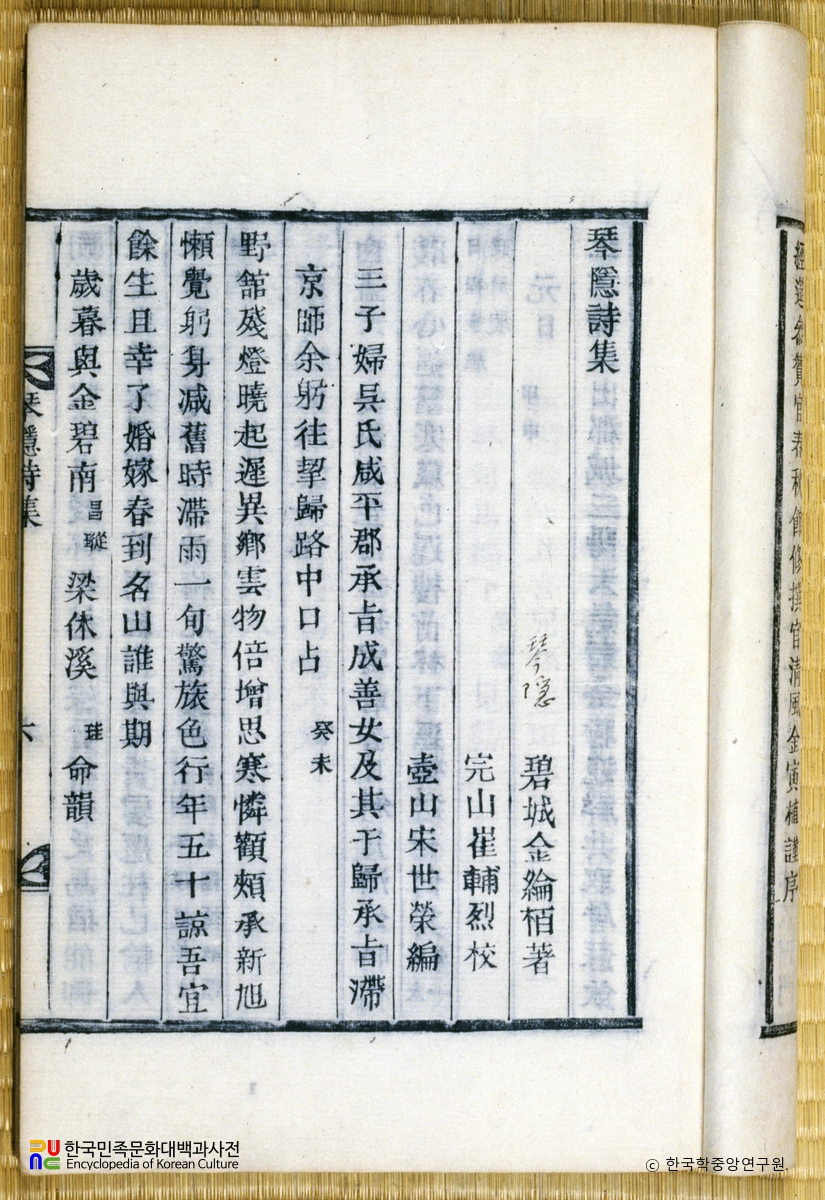 經筵參贊官春秋館修撰官清風金寅植謹序
琴隱詩集
琴隱
碧城金綸栢著
完山崔輔烈校
壺山宋世榮編
三子婦吳氏咸平郡承旨成善女及其于歸承旨滯
京師余躬往挈歸路中口占 癸未
野舘殘燈曉起遲異鄕雲物倍增思寒憐顴頰承新旭
懶覺躬身减舊時滯雨一旬驚旅色行年五十諒吾宜
餘生且幸了婚嫁春到名山誰與期
歲暮與金碧南昌 梁休溪珪命韻
琴隱詩集 六
한국민족문화대백과사전
Encyclopedia of Korean Culture
ⓒ 한국학중앙연구원.